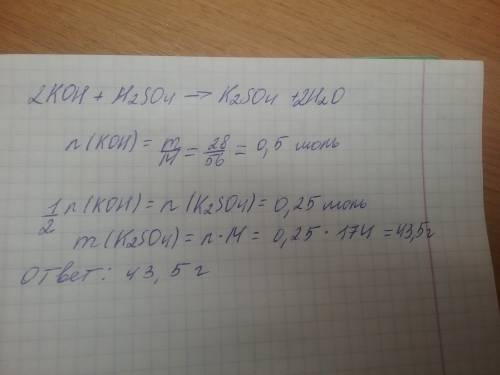 2KOH + H2SO4 → K2SO4 + 2H2O
n(KOH) = m/M = 28/56 = 0,5 моль
1/2 n(KOH) = n(K2SO4) = 0,25 моль
m(K2SO4) = n·M = 0,25 · 174 = 43,5г
Ответ: 43,5 г